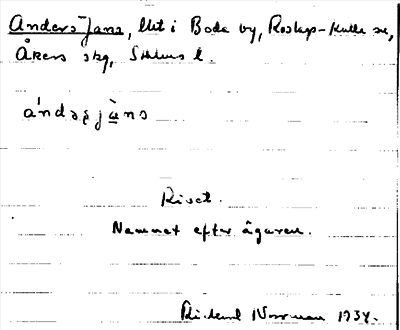 Anders-Jans, lht i Boda by, Roslags-Kulla sn,
Åkers skg, Sthlms l.
ándaʂ jὰns
Rivet.
Namnet efter ägaren.
Rickard Norrman 1934.